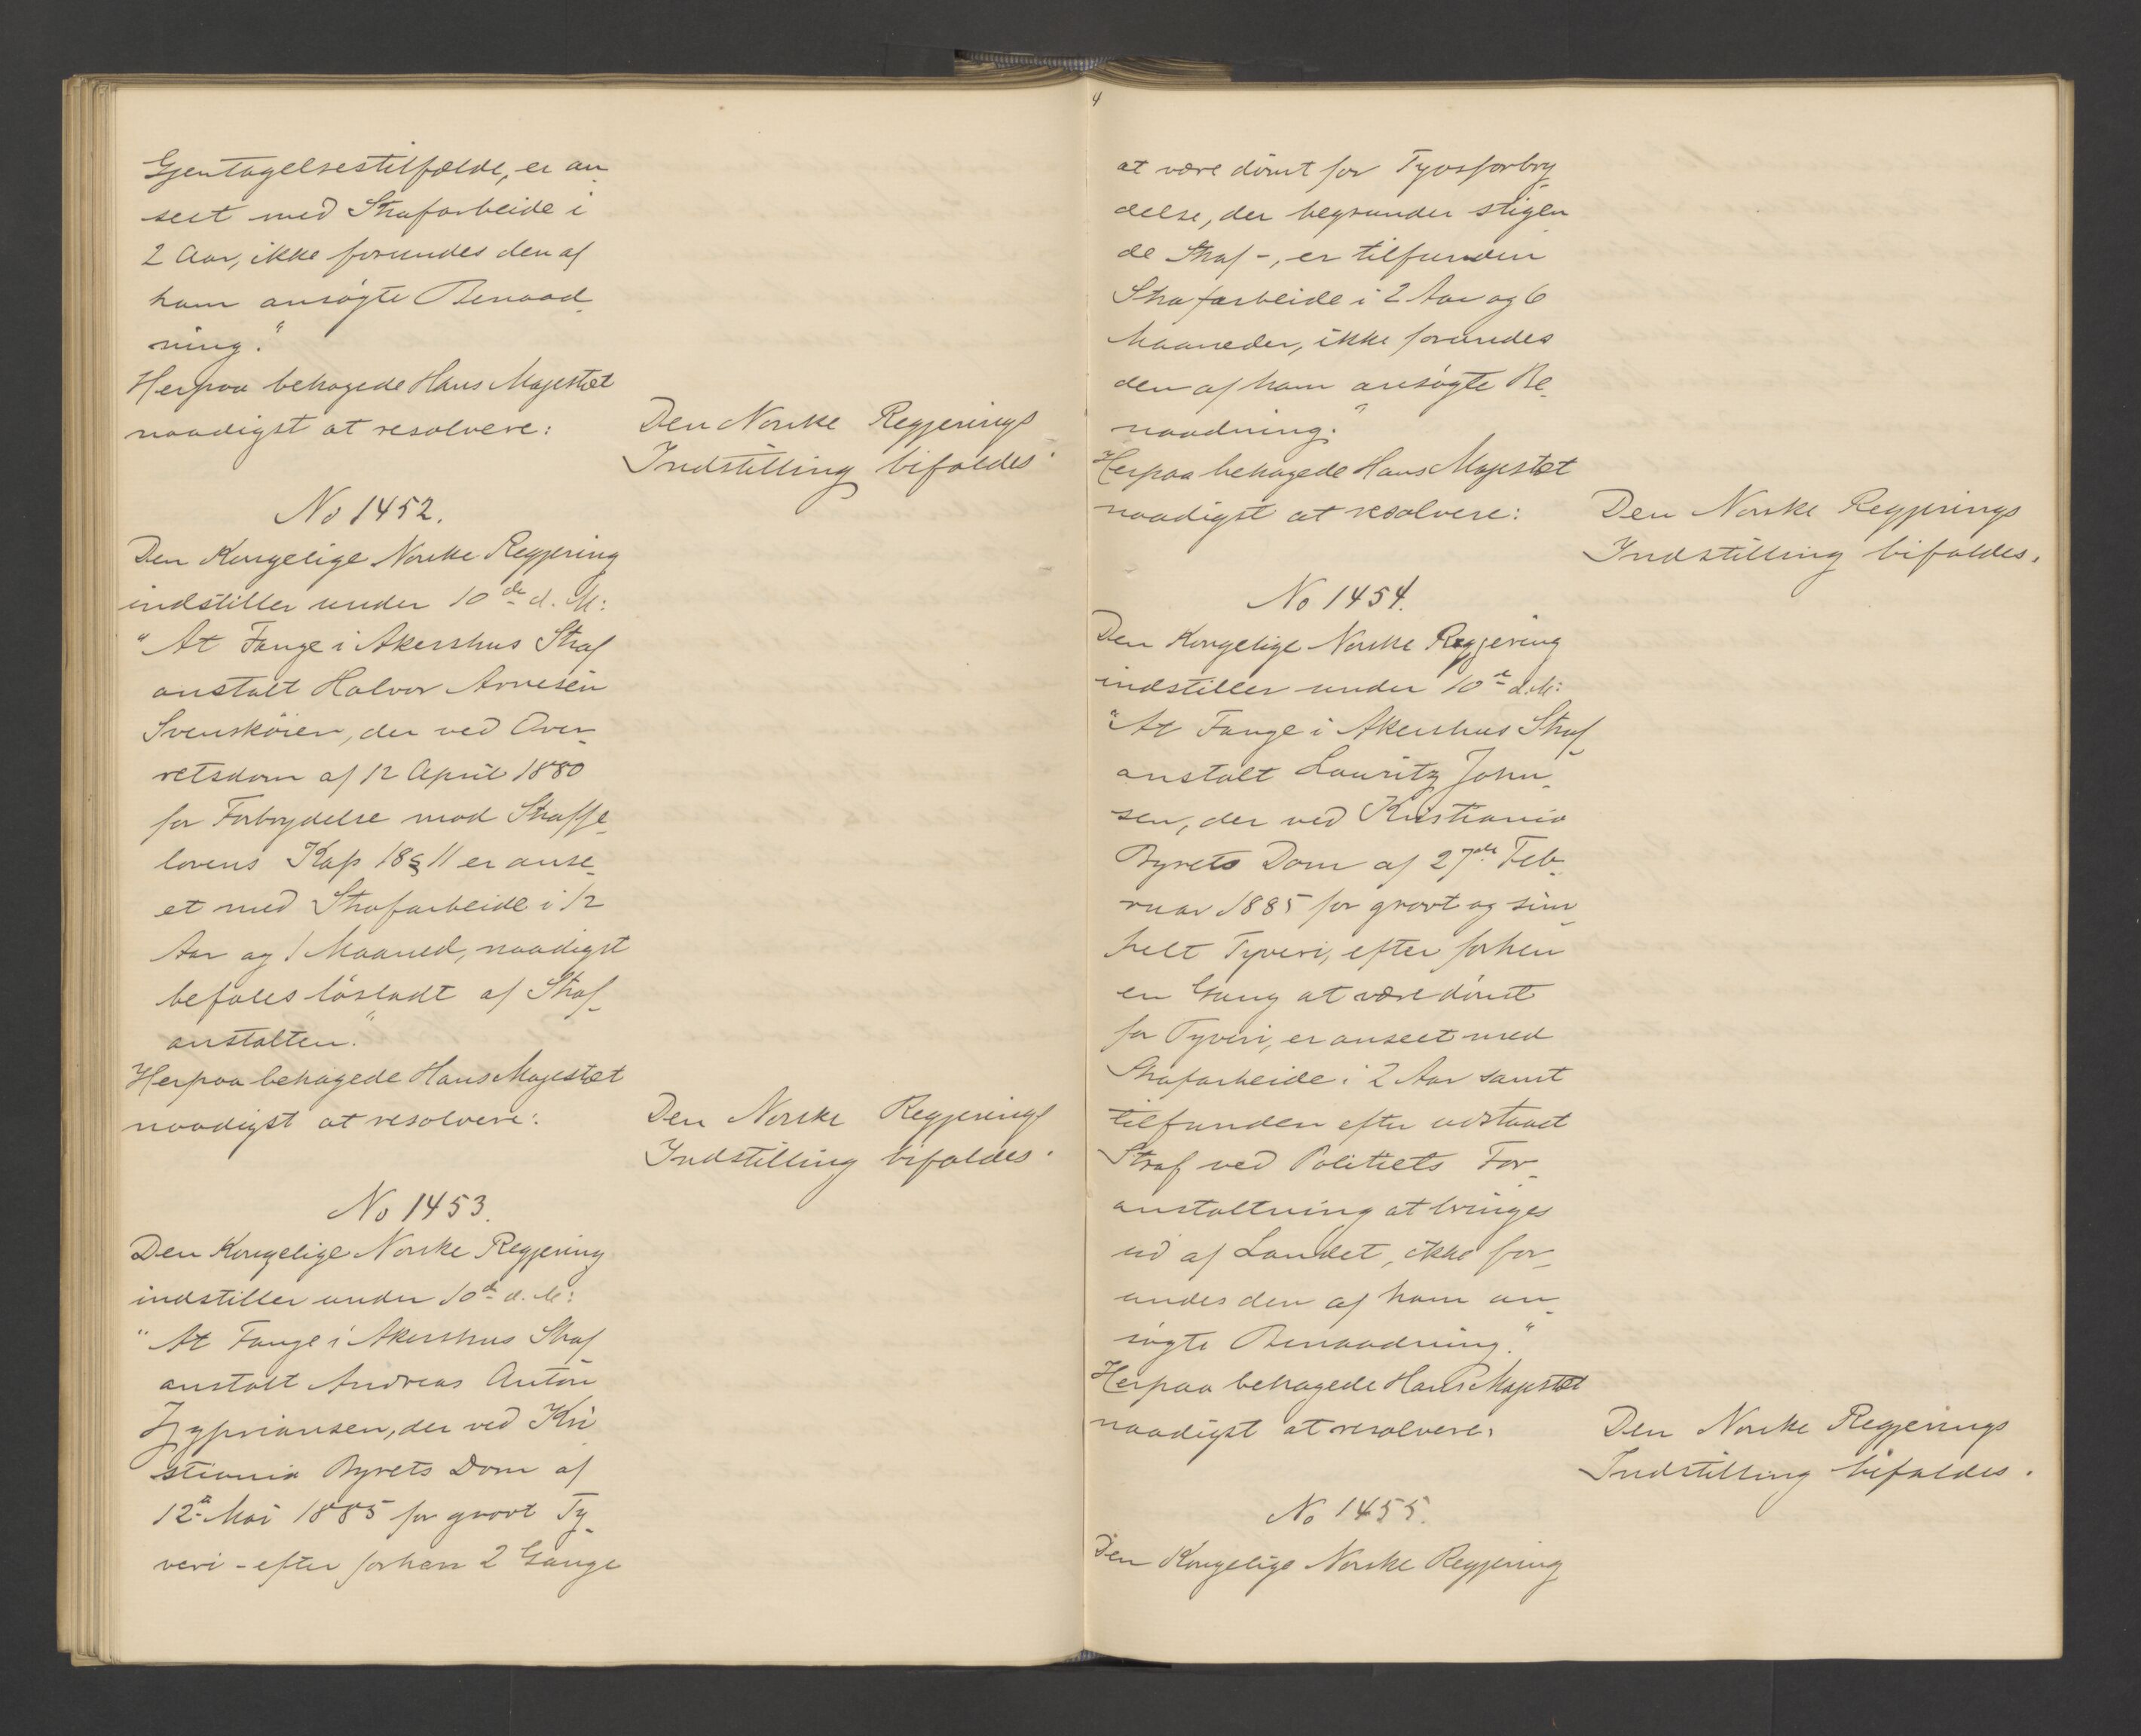 Gjentagelsestilfælde, er an-
seet med Strafarbeide i
2 Aar, ikke forundes den af
ham ansøgte Benaad-
ning."
Herpaa behagede Hans Majestæt
naadigst at resolvere:
Den Norske Regjerings
Indstilling bifaldes.
No 1452.
Den Kongelige Norske Regjering
indstiller under 10de d. M:
"At Fange i Akershus Straf
anstalt Halvor Arnesen
Svenskøien, der ved Over-
retsdom af 12 April 1880
for Forbrydelse mod Straffe-
lovens Kap 18 § 11 er anse-
et med Strafarbeide i 12
Aar og 1 Maaned, naadigst
befales løsladt af Straf-
anstalten."
Herpaa behagede Hans Majestæt
naadigst at resolvere:
Den Norske Regjerings
Indstilling bifaldes.
No 1453.
Den Kongelige Norske Regjering
indstiller under 10de d. M:
"At Fange i Akershus Straf
anstalt Andreas Anton
Zypriansen, der ved Kri
stiania Byrets Dom af
12te Mai 1885 for grovt Ty-
veri - efter forhen 2 Gange
4
at være dømt for Tyvsforbry-
delse, der begrunder stigen
de Straf -, er tilfunden
Strafarbeide i 2 Aar og 6
Maaneder, ikke forundes
den af ham ansøgte Be-
naadning."
Herpaa behagede Hans Majestæt
naadigst at resolvere:
Den Norske Regjerings
Indstilling bifaldes.
No 1454.
Den Kongelige Norske Regjering
indstiller under 10de d. M:
"At Fange i Akershus Straf-
anstalt Lauritz John-
sen, der ved Kristiania
Byrets Dom af 27de Feb-
ruar 1885 for grovt og sim
pelt Tyveri, efter forhen
en Gang at være dømt
for Tyveri, er anseet med
Strafarbeide i 2 Aar samt
tilfunden efter udstaaet
Straf ved Politiets For-
anstaltning at bringes
ud af Landet, ikke for-
undes den af ham an-
søgte Benaadning."
Herpaa behagede Hans Majestæt
naadigst at resolvere:
Den Norske Regjerings
Indstilling bifaldes.
No 1455.
Den Kongelige Norske Regjering